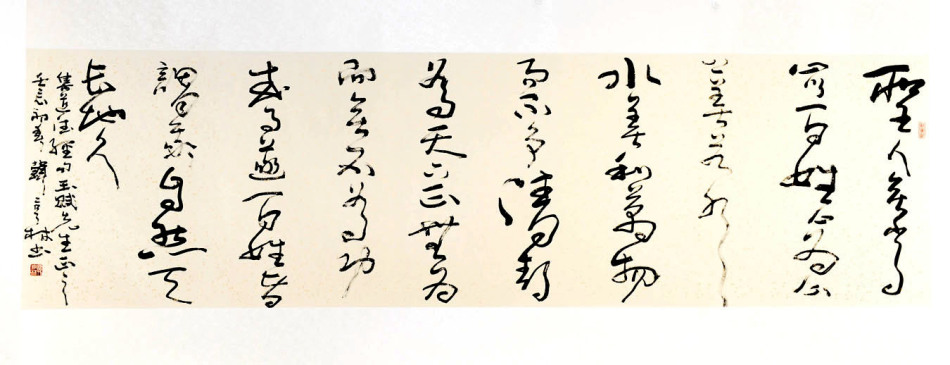 聖人無常心
以百姓心為心
上善若水
水善利萬物
而不爭清静
為天下正無為
而無不為功
成事遂百姓皆
謂我自然天
長地久
集道德經句玉斌先生正之